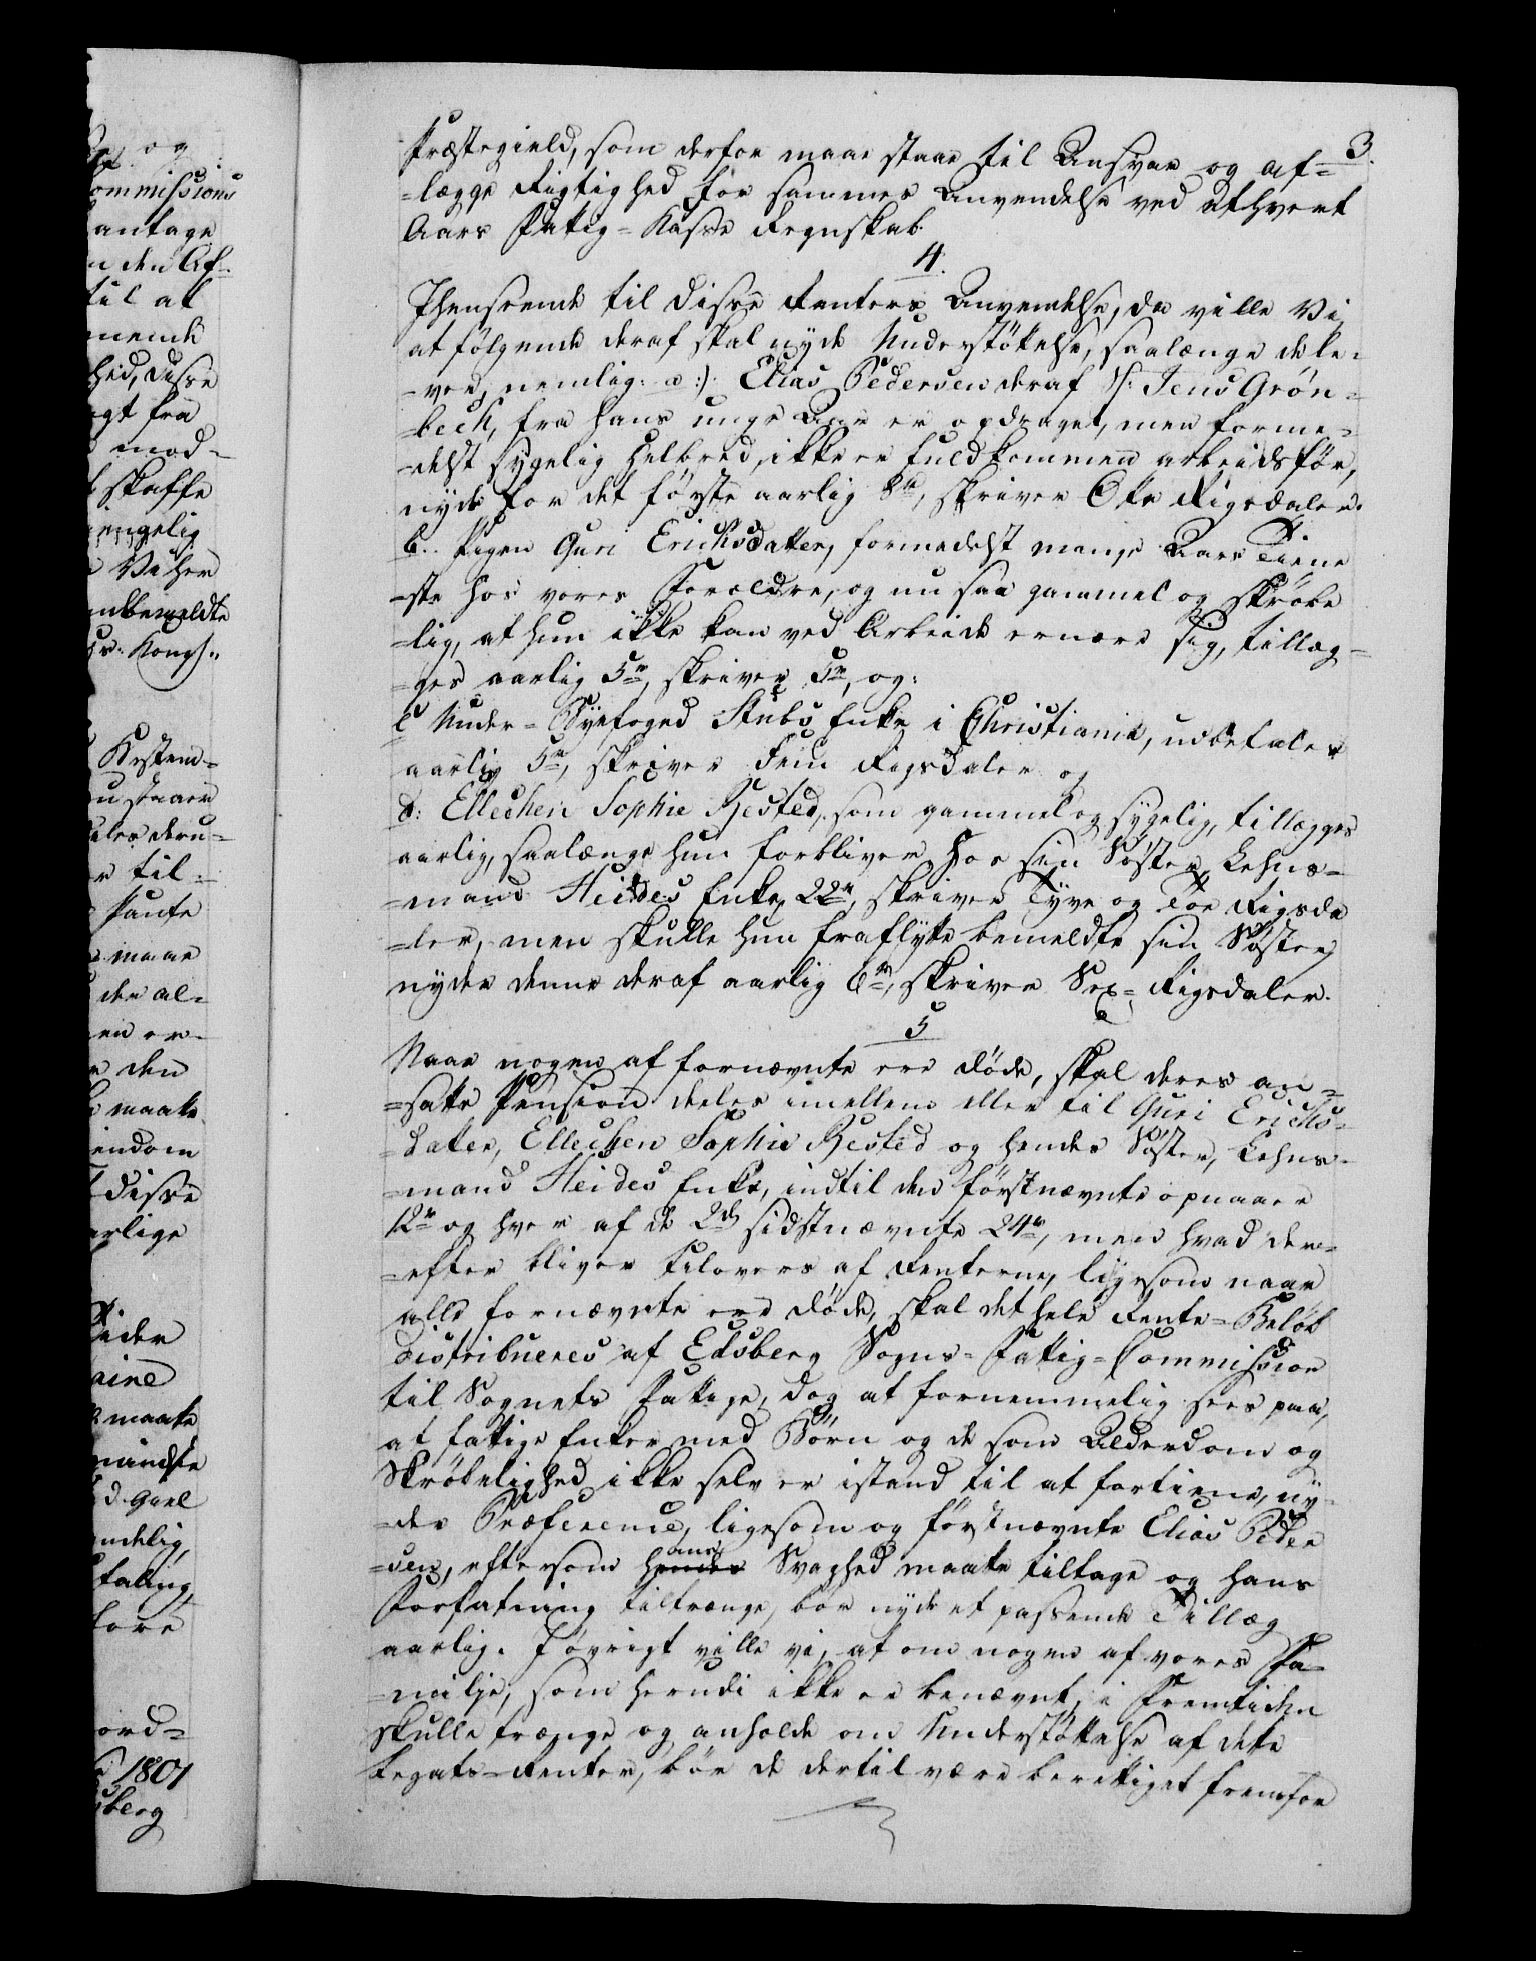 3.
Præstegield, som derfor maae staae til Ansvar og af-
-lægge Rigtighed for sammes Anvendelse ved ethvert
Aars Fattig-Kasse Regnskab.
4.
Ihenseende til disse Renters Anvendelse, da ville Vi
at følgende deraf skal nyde Understøttelse, saalænge de le-
-ver, nemlig: a:) Elias Pedersen deraf S: Jens Grøn-
-beck, fra hans unge Aar er opdraget, men forme-
-delst sygelig Helbred, ikke er fuldkommen arbeidsfør,
nyde for det første aarlig 8rd, skriver Otte Rigsdaler.
b.. Pigen Guri Erichsdatter, formedelst mange Aars Tiene
-ste hos vores Forældre, og nu saa gammel og skrøbe
-lig, at hun ikke kan ved Arbeide ernære sig, tillæg-
-ges aarlig 5rd, skriver 5rd, og:
c Under-Byefoged Stubs Enke i Christiania, udbetales
aarlig 5rd, skriver Fem Rigsdaler og
d: Ellechen Sophie Rested, som gammel og sygelig, tillægges
aarlig, saalænge hun forbliver hos sin Søster, Lehns-
-mand Heides Enke 22rd, skriver Tyve og Toe Rigsda
-ler, men skulle hun fraflytte bemeldte sin Søster,
nyder denne deraf aarlig 6rd, skriver Sex Rigsdaler.
5
Naar nogen af fornævnte ere døde, skal deres an-
-satte Pension deeles imellem eller til Guri Erichs-
-datter, Ellechen Sophie Rested og hendes Søster, Lehns-
-mand Heides Enke, indtil den førstnævnte opnaaer
12rd og hver af de 2de sidstnævnte 24rd, men hvad der-
-efter bliver tilovers af Renterne, ligesom naar
alle fornævnte ere døde, skal det hele Rente-Beløb
distribueres af Edsberg Sogns-Fattig-Commission
til Sognets Fattige, dog at fornemmelig sees paa,
at fattige Enker med Børn og de som Alderdom og
Skrøbelighed ikke selv er istand til at fortiene, ny-
-der Præference, ligesom og førstnævnte Elias Peder
-sen, eftersom hans Svaghed maatte tiltage og hans
Forfatning tiltrænge, bør nyde et passende Tillæg
aarlig. Iøvrigt ville vi, at om nogen af vores Fa-
-milje, som herudi ikke er benævnt, i Fremtiden
skulle trænge og anholde om Understøttelse af dette
Legats-Renter, bør de dertil være berettiget fremfor